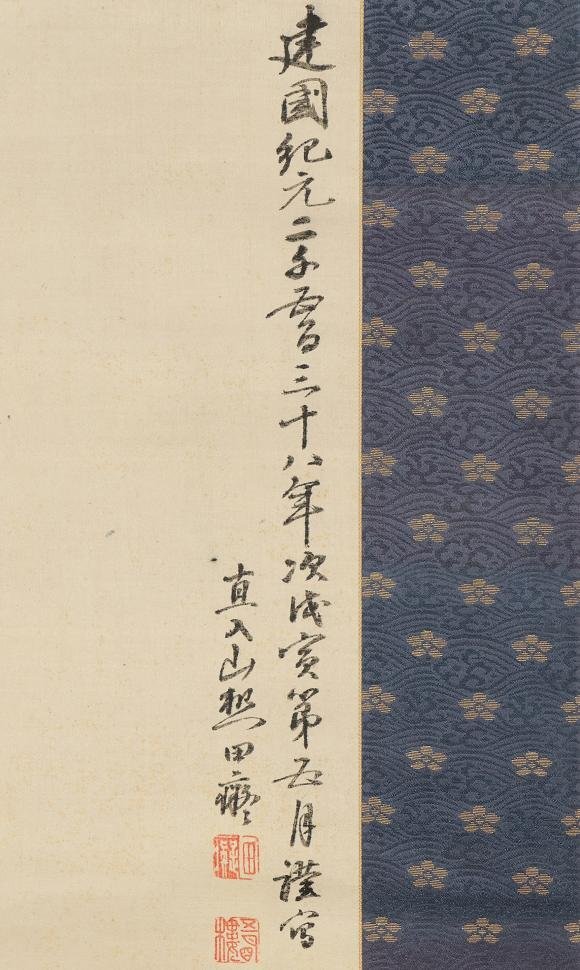 建國紀元二千五百三十八年次戊寅第五月謹写
直入山樵田癡
田癡